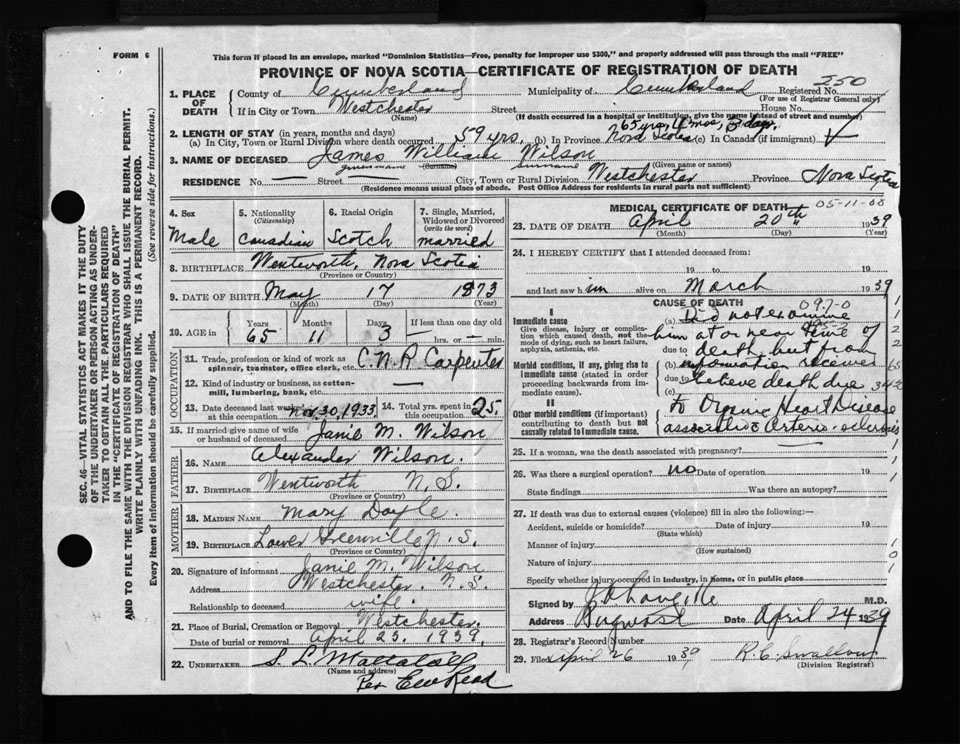 FORM 6
This form if placed in an envelope, marked "Dominion Statistics—Free, penalty for improper use $300," and properly addressed will pass through the mail "FREE"
PROVINCE OF NOVA SCOTIA—CERTIFICATE OF REGISTRATION OF DEATH
250
1. PLACE OF DEATH County of Cumberland Municipality of Cumberland Registered No.
(For use of Registrar General only)
If in City or Town Westchester Street House No.
(Name) (If death occurred in a hospital or institution, give the name instead of street and number)
2. LENGTH OF STAY (in years, months and days) 65 yrs, 11 mos, 3 days.
(a) In City, Town or Rural Division where death occurred 59 yrs. (b) In Province Nova Scotia (c) In Canada (if immigrant) ✓
3. NAME OF DECEASED James William Wilson
(Surname) surname (Given name or names)
RESIDENCE No. — Street — City, Town or Rural Division Westchester Province Nova Scotia
(Residence means usual place of abode. Post Office Address for residents in rural parts not sufficient)
4. Sex
Male
5. Nationality
(Citizenship)
Canadian
6. Racial Origin
Scotch
7. Single, Married, Widowed or Divorced
(write the word)
married
8. BIRTHPLACE Wentworth, Nova Scotia
(Province or Country)
9. DATE OF BIRTH May 17 1873
(Month) (Day) (Year)
10. AGE in Years Months Days If less than one day old
65 11 3 hrs. or — min.
OCCUPATION
11. Trade, profession or kind of work as spinner, teamster, office clerk, etc. C.N.R Carpenter
12. Kind of industry or business, as cotton-mill, lumbering, bank, etc. —
13. Date deceased last worked at this occupation Nov 30, 1933 14. Total yrs. spent in this occupation 25
15. If married give name of wife or husband of deceased Janie M. Wilson
FATHER
16. NAME Alexander Wilson.
17. BIRTHPLACE Wentworth N.S.
(Province or Country)
MOTHER
18. MAIDEN NAME Mary Doyle.
19. BIRTHPLACE Lower Greenville N.S.
(Province or Country)
20. Signature of informant Janie M. Wilson
Address Westchester. N.S.
Relationship to deceased wife.
21. Place of Burial, Cremation or Removal Westchester.
Date of burial or removal April 23. 1939.
22. UNDERTAKER
(Name and address)
Per
MEDICAL CERTIFICATE OF DEATH 05-11-00
23. DATE OF DEATH April 20th 1939
(Month) (Day) (Year)
24. I HEREBY CERTIFY that I attended deceased from:
19 to 19
and last saw him alive on March 1939
CAUSE OF DEATH 097-0
I
Immediate cause (a) Did not examine
Give disease, injury or complication which caused death, not the mode of dying, such as heart failure, asphyxia, asthenia, etc.
him at or near time of
due to death, but from
Morbid conditions, if any, giving rise to immediate cause (stated in order proceeding backwards from immediate cause).
(b) information received
due to believe death due
(c)
II
Other morbid conditions (if important) contributing to death but not causally related to immediate cause.
to Organic Heart Disease
associative Arterio-sclerosis
25. If a woman, was the death associated with pregnancy?
26. Was there a surgical operation? no Date of operation 19
State findings Was there an autopsy?
27. If death was due to external causes (violence) fill in also the following:—
Accident, suicide or homicide? Date of injury 19
(State which)
Manner of injury
(How sustained)
Nature of injury
Specify whether injury occurred in industry, in home, or in public place
Signed by M.D.
Address Pugwash Date April 24 1939
28. Registrar's Record Number
29. Filed April 26 1939 R.C. Swallow
(Division Registrar)
SEC. 46—VITAL STATISTICS ACT MAKES IT THE DUTY
OF THE UNDERTAKER OR PERSON ACTING AS UNDER-
TAKER TO OBTAIN ALL THE PARTICULARS REQUIRED
IN THE "CERTIFICATE OF REGISTRATION OF DEATH"
AND TO FILE THE SAME WITH THE DIVISION REGISTRAR WHO SHALL ISSUE THE BURIAL PERMIT.
WRITE PLAINLY WITH UNFADING INK. THIS IS A PERMANENT RECORD.
Every item of information should be carefully supplied. (See reverse side for instructions.)